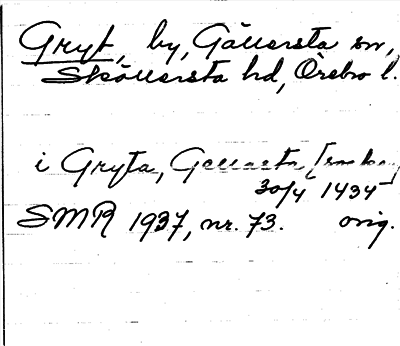 Gryt, by, Gällersta sn,
Sköllersta hd, Örebro l.
i Gryta,
30/4 1434
SMR 1937, nr. 73. orig.